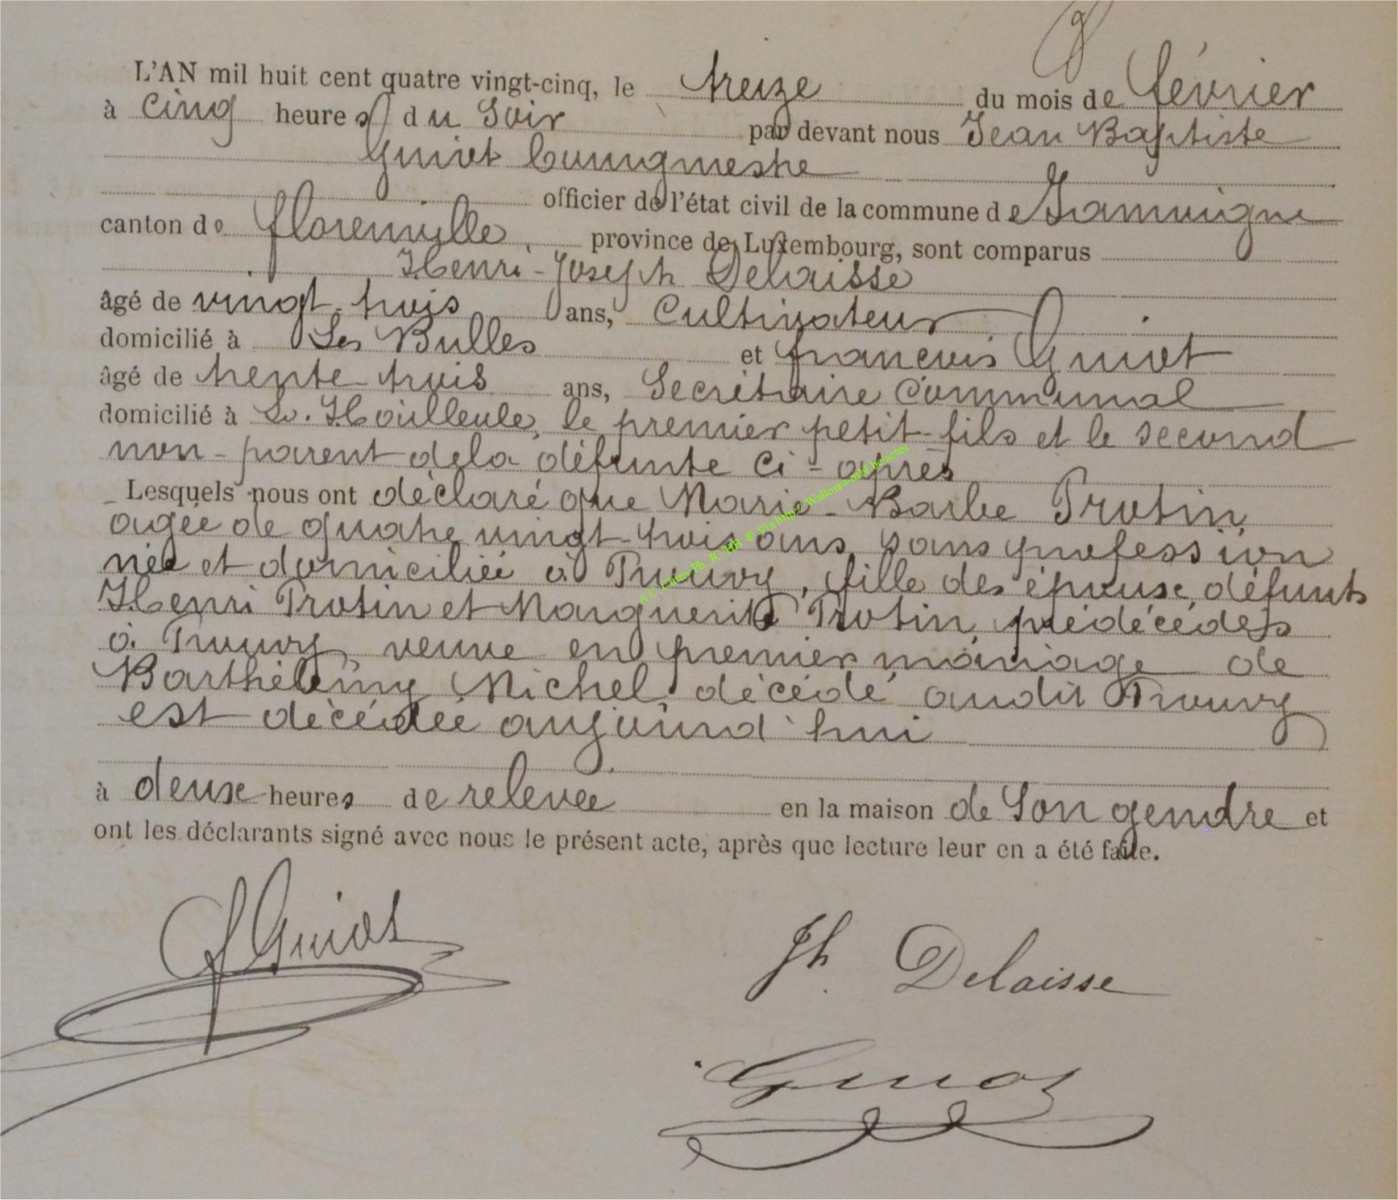 L'AN mil huit cent quatre vingt-cinq, le treize du mois de février
à cinq heures du Soir par devant nous Jean Baptiste
Guiot bourgmestre
officier de l'état civil de la commune de Jamoigne
canton de florenville, province de Luxembourg, sont comparus
Henri-Joseph Delaisse
âgé de vingt-trois ans, Cultivateur
domicilié à Les Bulles et françois Guiot
âgé de trente-trois ans, Secrétaire Communal
domicilié à le premier petit-fils et le second
non-parent de la défunte ci-après
Lesquels nous ont déclaré que Marie-Barbe Protin
agée de quatre vingt-trois ans, sans profession
née et domiciliée à Prouvy, fille des épouse défunts
Henri Protin et Marguerite Protin, prédécédés
à Prouvy, veuve en premier mariage de
Barthélemy Michel décédé audit Prouvy
est décédée aujourd'hui
à deux heures de relevée en la maison de Son gendre et
ont les déclarants signé avec nous le présent acte, après que lecture leur en a été faite.
f Guiot
Jh. Delaisse
Guiot